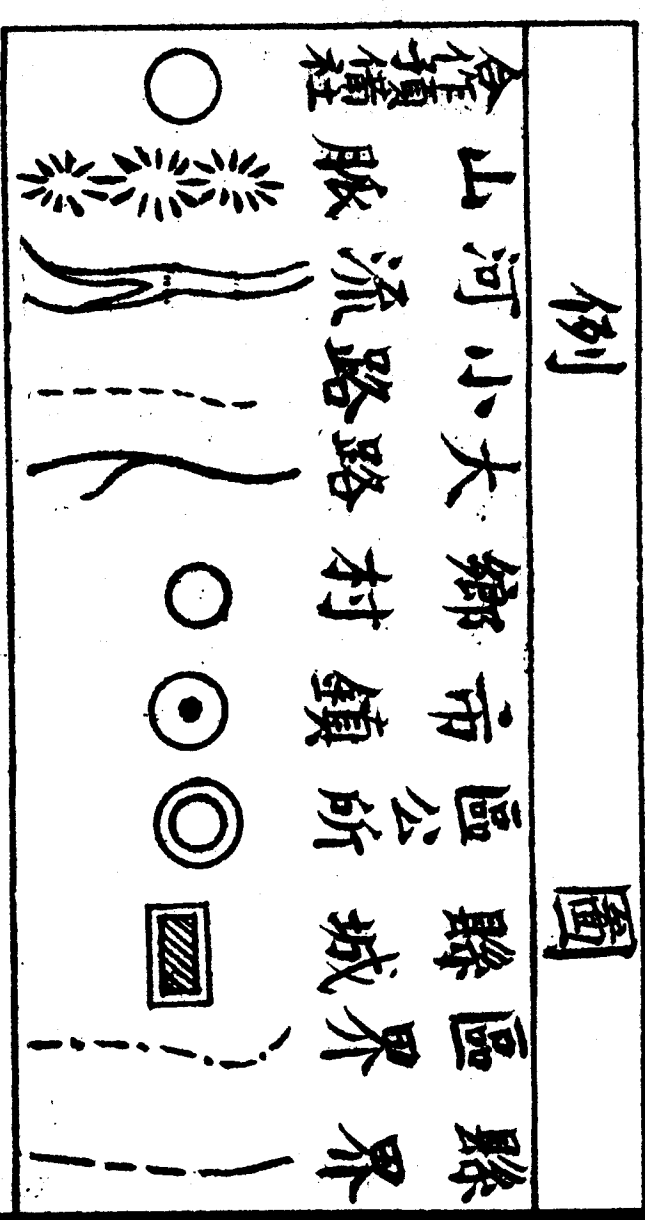 圖例
縣界
區界
縣城
區公所
市鎮
鄉村
大路
小路
河流
山脈
合作預備社